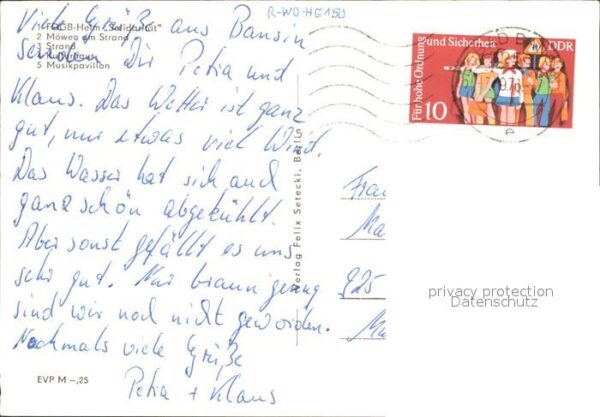 R-WO-HE150
Viele Grüße aus Bansin
1 FDGB-Heim „Solidarität"
2 Möwen am Strand
senden Dir Petra und
3 Strand
5 Musikpavillon
Klaus. Das Wetter ist ganz
gut, nur etwas viel Wind.
Das Wasser hat sich auch
ganz schön abgekühlt.
Aber sonst gefällt es uns
sehr gut. Nur braun genug
sind wir noch nicht geworden.
Nochmals viele Grüße
Petra + Klaus
EVP M –,25
Verlag Felix Setecki, Berlin
Für hohe Ordnung und Sicherheit
DDR
10
Frau
Ma
925
privacy protection
Datenschutz